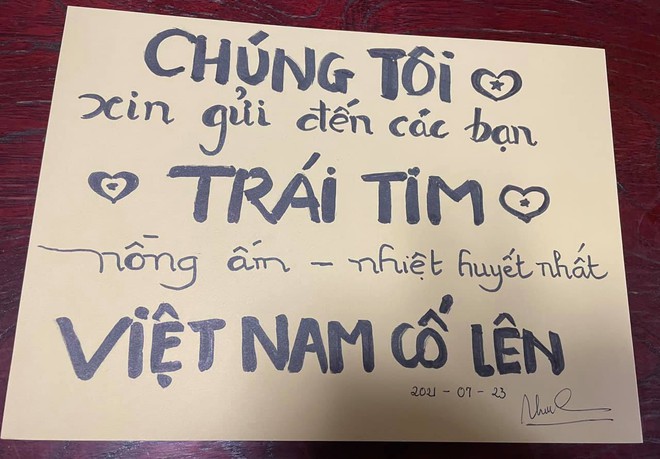 CHÚNG TÔI
xin gửi đến các bạn
TRÁI TIM
nồng ấm - nhiệt huyết nhất
VIỆT NAM CỐ LÊN
2021 - 07 - 23